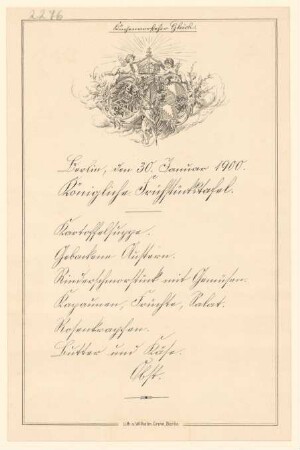 2.276
Küchenmeister Glück.
Berlin, den 30. Januar 1900.
Königliche Frühstückstafel.
Kartoffelsuppe.
Gebackene Austern.
Rinderschmorstück mit Gemüsen.
Kapaunen, Früchte, Salat.
Rosenkrapfen.
Butter und Käse.
Obst.
Lith. v. Wilhelm Greve, Berlin.